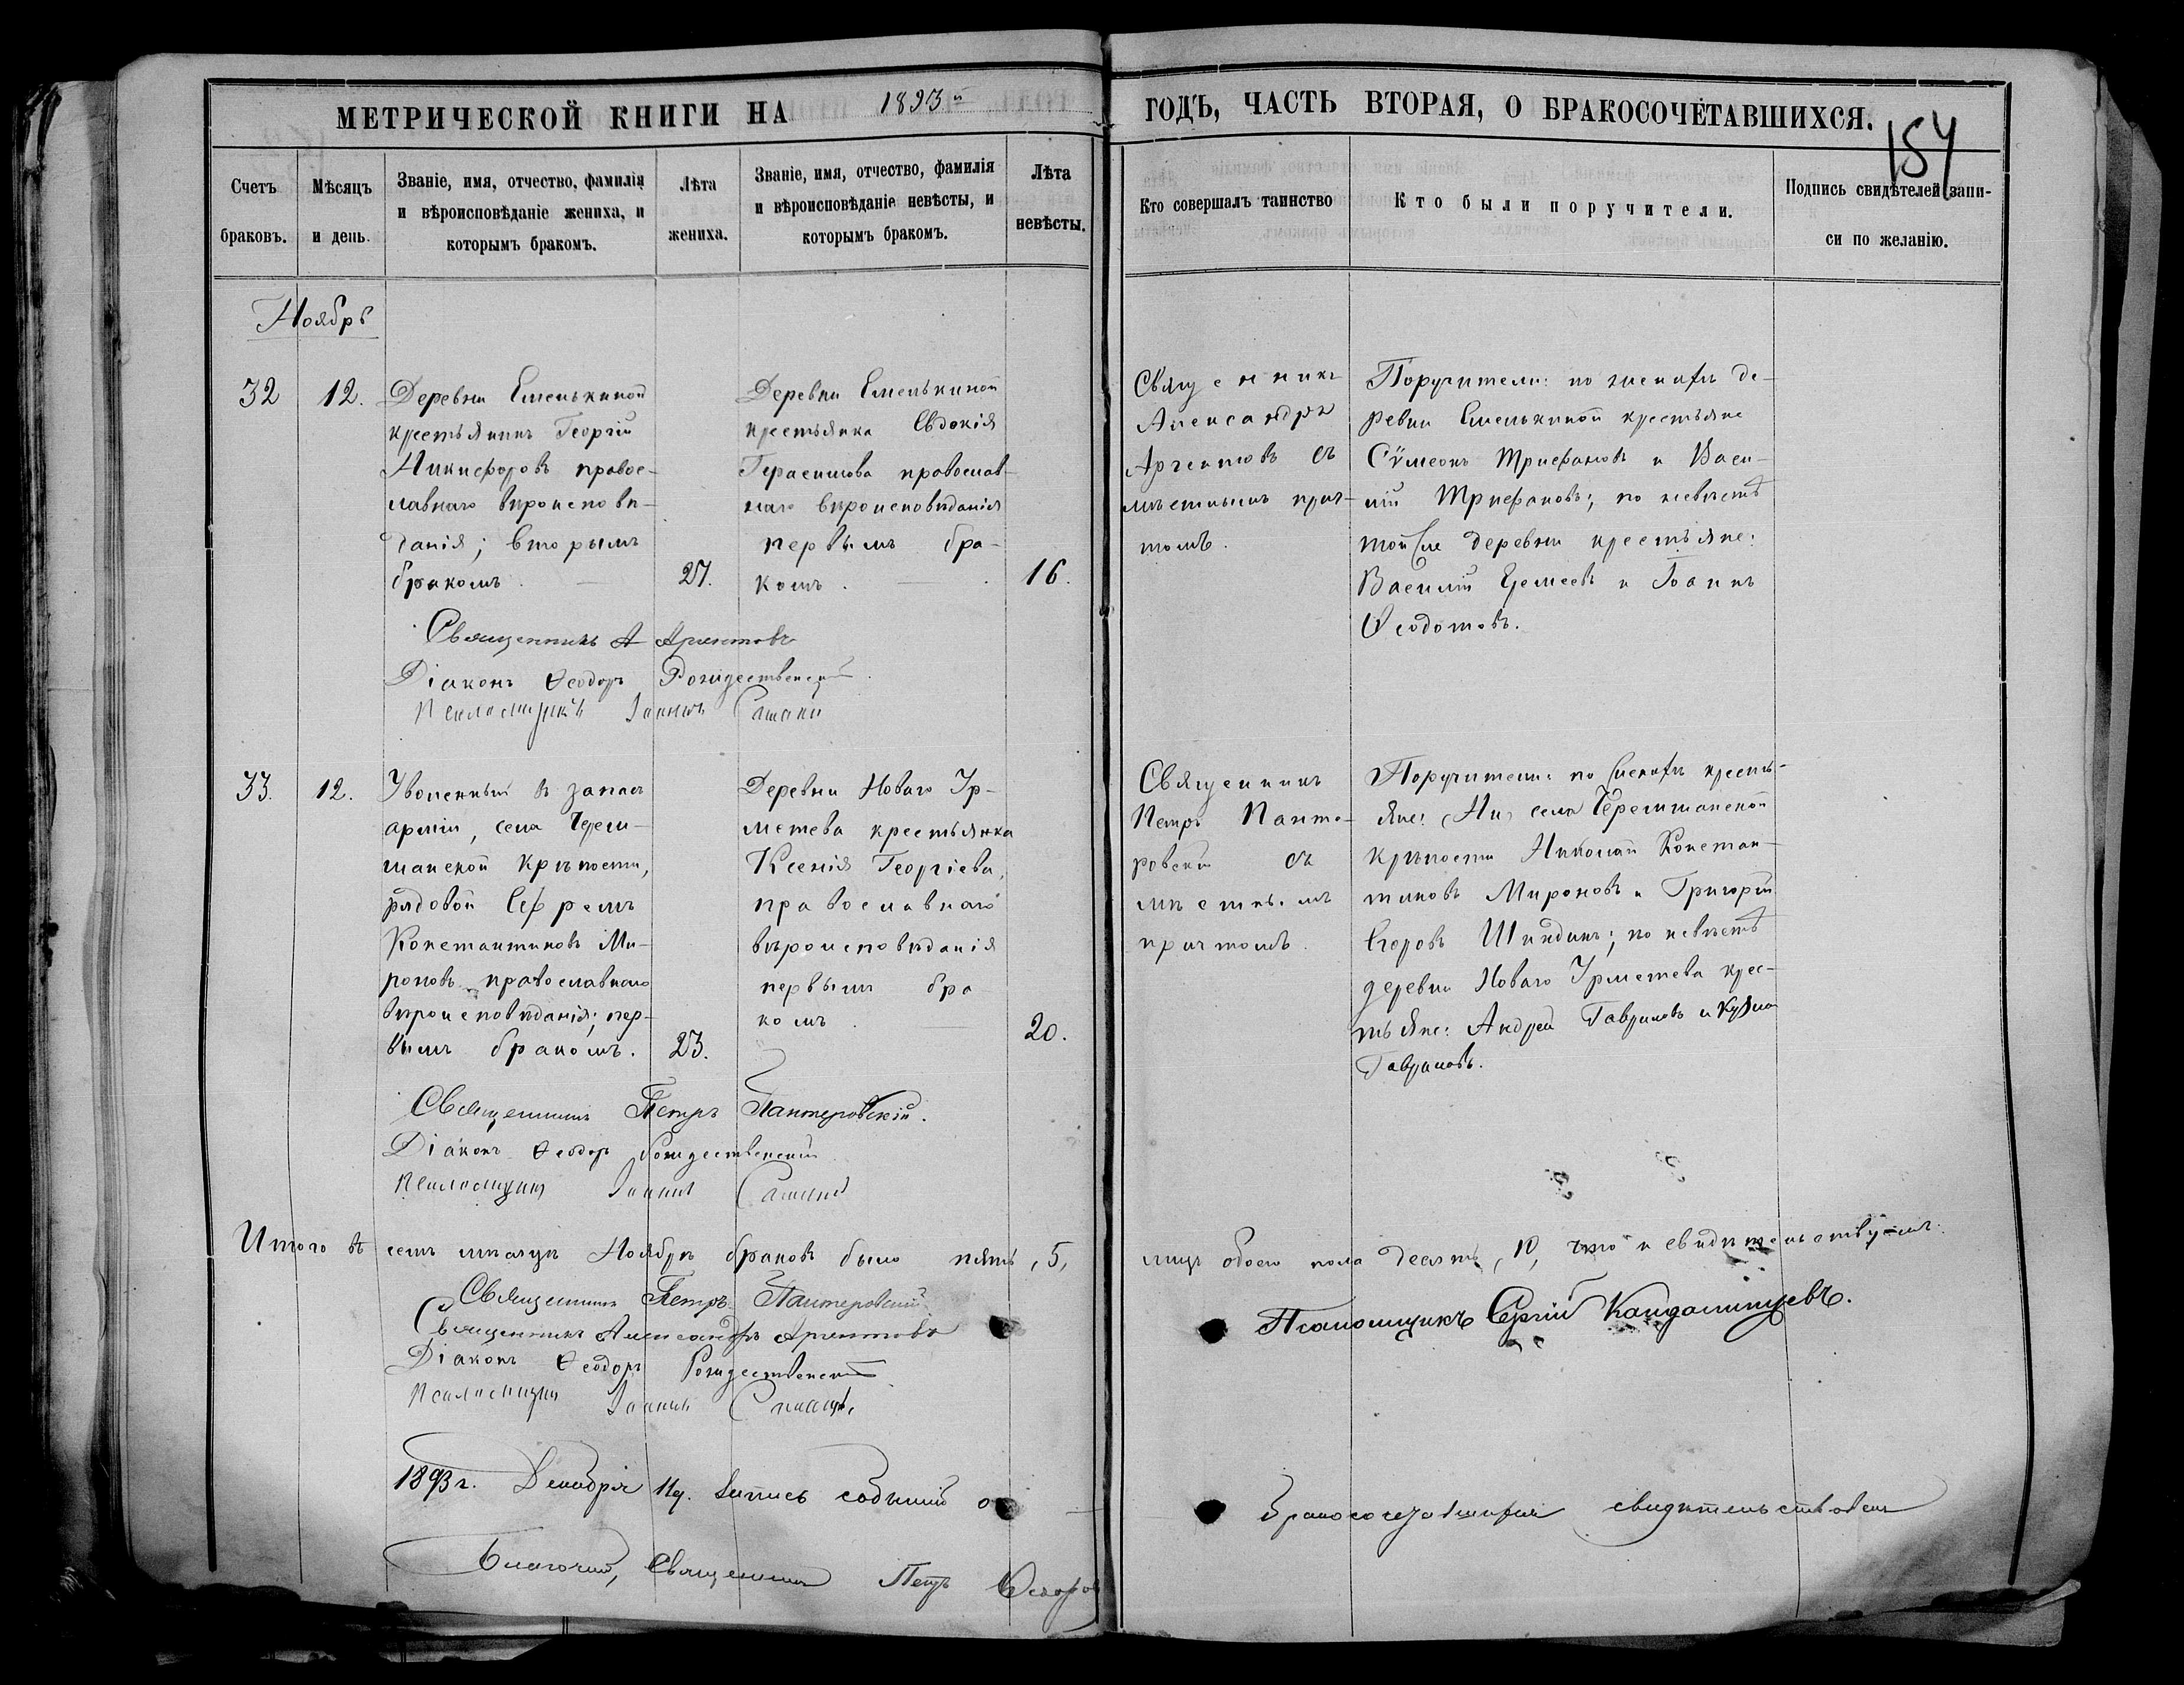 МЕТРИЧЕСКОЙ КНИГИ НА 1893й
ГОДЪ, ЧАСТЬ ВТОРАЯ, О БРАКОСОЧЕТАВШИХСЯ.
154
Счетъ
браковъ.
Мѣсяцъ
и день.
Званіе, имя, отчество, фамилія
и вѣроисповѣданіе жениха, и
которымъ бракомъ.
Лѣта
жениха.
Званіе, имя, отчество, фамилія
и вѣроисповѣданіе невѣсты, и
которымъ бракомъ.
Лѣта
невѣсты.
Кто совершалъ таинство
Кто были поручители.
Подпись свидѣтелей запи-
си по желанію.
Ноябрь
32
12.
Деревни Емелькиной
крестьянинъ Георгій
Никифоровъ правос-
лавнаго вѣроисповѣ-
данія; вторымъ
бракомъ.
27.
Деревни Емелькиной
крестьянка Евдокія
Герасимова православ-
наго вѣроисповѣданія
первымъ бра-
комъ.
16.
Священникъ
Александръ
Аргентовъ съ
мѣстнымъ прич-
томъ.
Поручители: по женихѣ де-
ревни Емелькиной крестьяне
Сѵмеонъ Трифановъ и Васи-
лій Трифановъ; по невѣстѣ
той же деревни крестьяне:
Василій Еремеевъ и Іоаннъ
Ѳеодотовъ.
Священникъ А Аргентовъ
Діаконъ Ѳеодоръ Рождественскій
Псаломщикъ Іоаннъ
33.
12.
Уволенный въ запасъ
арміи, села Черем-
шанской Крѣпости,
рядовой Ефремъ
Константиновъ Ми-
роновъ православнаго
вѣроисповѣданія; пер-
вымъ бракомъ.
23.
Деревни Новаго Ур-
метева крестьянка
Ксенія Георгіева,
православнаго
вѣроисповѣданія
первымъ бра
комъ.
20.
Священникъ
Петръ Панте-
ровскій съ
мѣстнымъ
причтомъ.
Поручители: по женихѣ кресть-
яне: села Черемшанской
крѣпости Николай Констан-
тиновъ Мироновъ и Григорій
Егоровъ Шиндинъ; по невѣстѣ
деревни Новаго Урметева крес-
тьяне: Андрей Гавриловъ и Кузма
Гавриловъ.
Священникъ Петръ Пантеровскій.
Діаконъ Ѳеодоръ Рождественскій
Псаломщикъ Іоаннъ
Итого въ семъ мѣсяцѣ Ноябрѣ браковъ было пять, 5,
лицъ обоего пола десять, 10, что и свидѣтельствуемъ:
Священникъ Петръ Пантеровскій
Священникъ Александръ Аргентовъ
Діаконъ Ѳеодоръ Рождественскій
Псаломщикъ Іоаннъ
Псаломщикъ Сергій
1893 г. Декабря 11 д. Запись о
бракосочетавшихся свидѣтельствовалъ
Благочин, Священникъ Петръ